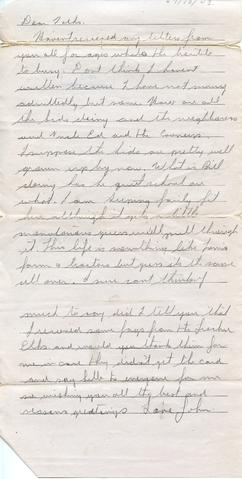 Dear Folks.
Haven't received any letters from
you all for ages whats the trouble
to busy. I dont think I havent
written because I have not many
admittedly but some. How are all
the kids doing and the neighbours
and Uncle Ed and the
I suppose the kids are pretty well
grown up by now. What is Bill
doing has he quit school or
what. I am keeping fairly fit
here although it gets a little
monotonous guess will pull through
it. This life is something like
farm but guess its the same
all over. I sure cant think of
much to say did I tell you that
I received some from the
and would you thank them for
me in case they didn't get the card
and say hello to everyone for me
so wishing you all the best and
seasons greetings Love John.